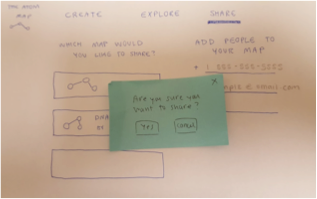 MAP
CREATE
EXPLORE
SHARE
WHICH MAP WOULD
YOU LIKE TO SHARE?
ADD PEOPLE TO
YOUR MAP
+ 1 555-555-5555
@ email.com
x
Are you sure you
want to share?
Yes!
Cancel